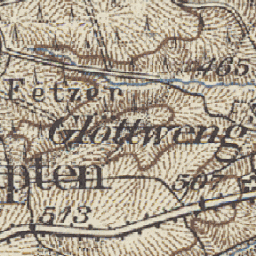 465
Fetzer
Glöttweng
pten
507
513